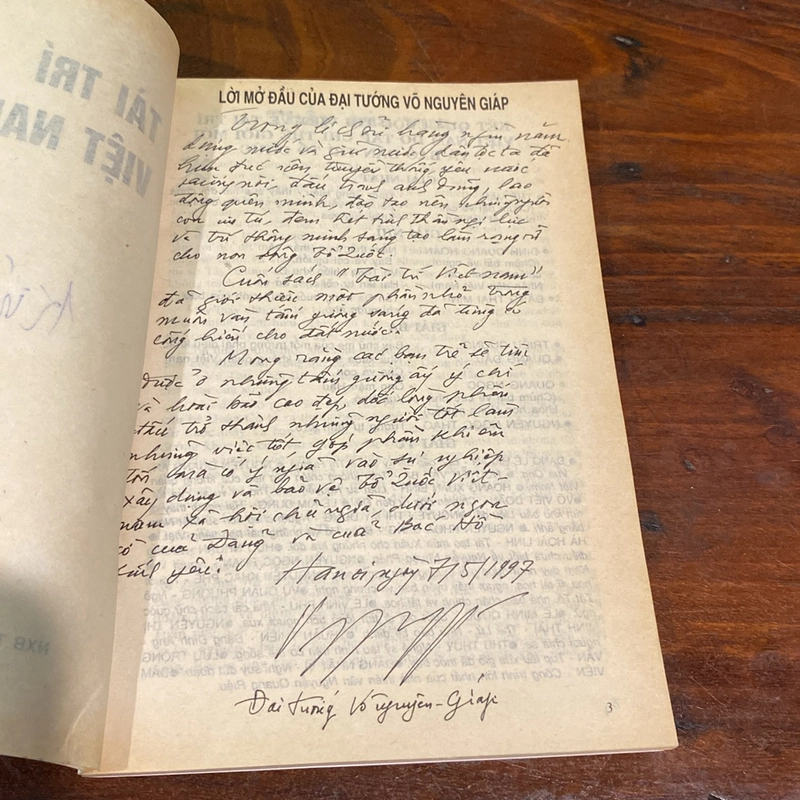 TÀI TRÍ
VIỆT NAM
LỜI MỞ ĐẦU CỦA ĐẠI TƯỚNG VÕ NGUYÊN GIÁP
Trong lịch sử hàng ngàn năm
dựng nước và giữ nước, dân tộc ta đã
hun đúc nên truyền thống yêu nước
nồng nàn, đấu tranh anh dũng, lao
động quên mình, đào tạo nên những người
con ưu tú, đem hết tinh thần nghị lực
và trí thông minh sáng tạo làm rạng rỡ
cho non sông Tổ Quốc.
Cuốn sách "Tài trí Việt nam"
đã giới thiệu một phần nhỏ trong
muôn vàn tấm gương sáng đã từng
cống hiến cho đất nước.
Mong rằng các bạn trẻ sẽ tìm
được ở những tấm gương ấy ý chí
và hoài bão cao đẹp, dốc lòng phấn
đấu trở thành những người tốt làm
những việc tốt, góp phần khiêm
tốn mà có ý nghĩa vào sự nghiệp
xây dựng và bảo vệ Tổ Quốc Việt-
nam xã hội chủ nghĩa, dưới ngọn
cờ của Đảng và của Bác Hồ
kính yêu.
Hà nội ngày 7/5/1997
Đại tướng Võ nguyên-Giáp
3